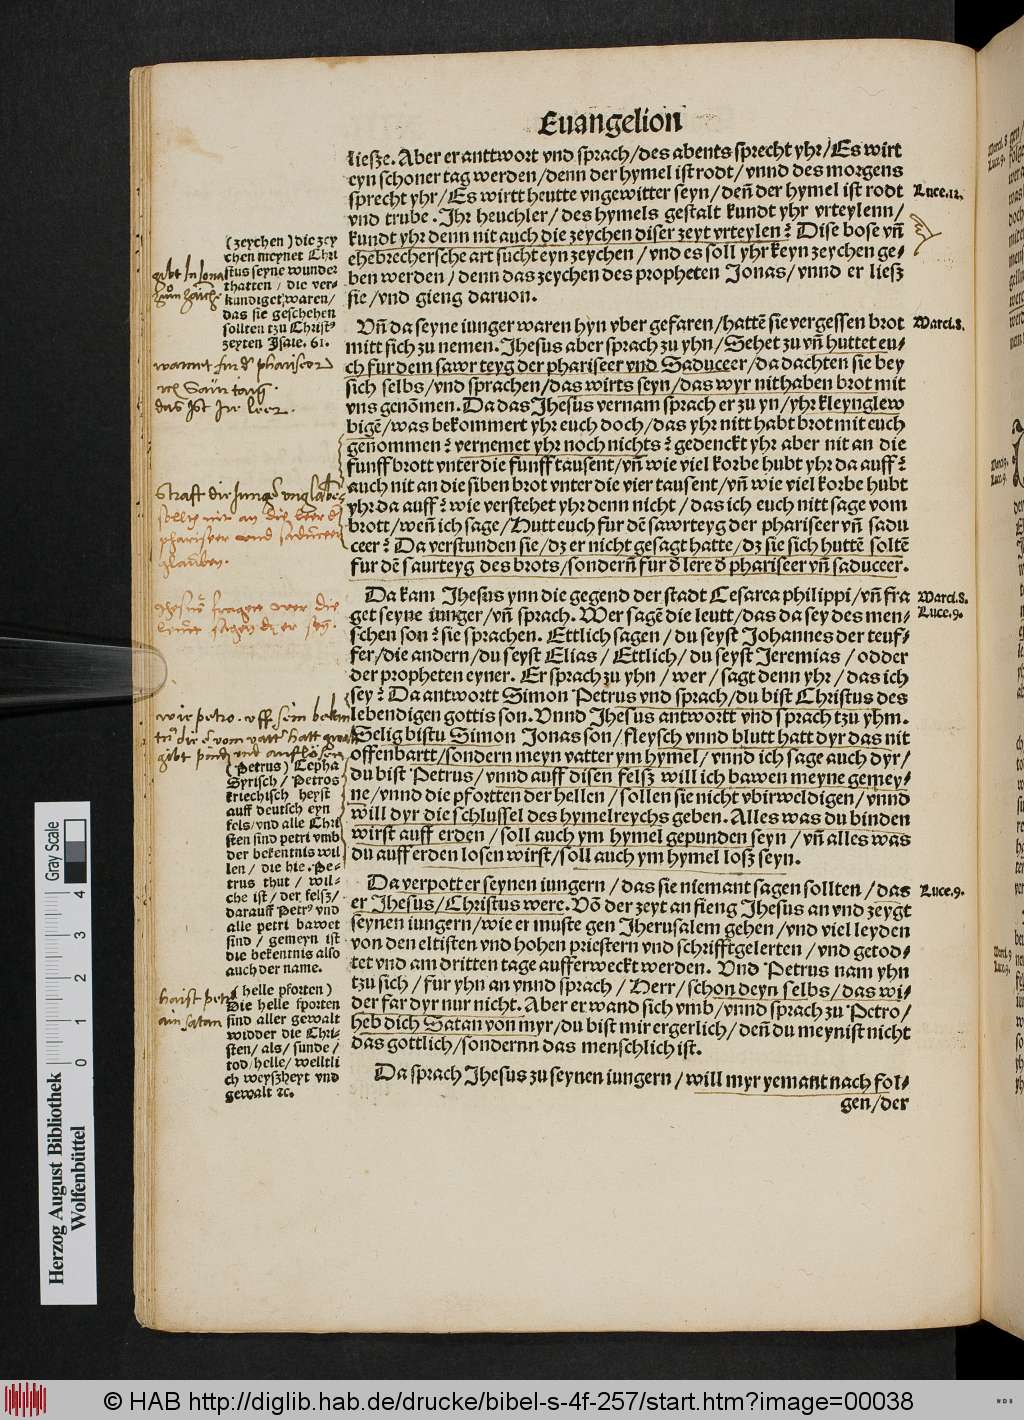 Euangelion
liesze. Aber er anttwort vnd sprach/des abents sprecht yhr/Es wirt
eyn schoner tag werden/denn der hymel ist rodt/vnnd des morgens
sprecht yhr/Es wirtt heutte vngewitter seyn/deñ der hymel ist rodt
vnd trube. Ihr heuchler/des hymels gestalt kundt yhr vrteylenn/
kundt yhr denn nit auch die zeychen diser zeyt vrteylen? Dise bose vñ
ehebrechersche art sucht eyn zeychen/vnd es soll yhr keyn zeychen ge-
ben werden/denn das zeychen des propheten Jonas/vnnd er liesz
sie/vnd gieng daruon.
Luce.12.
(zeychen) die zey
chen meynet Chri
stus seyne wunder
thatten/die ver-
kundiget waren/
das sie geschehen
sollten tzu Christꝰ
zeyten Isaie. 61.
Vñ da seyne iunger waren hyn vber gefaren/hattē sie vergessen brot
mitt sich zu nemen. Ihesus aber sprach zu yhn/Sehet zu vñ huttet eu-
ch fur dem sawr teyg der phariseer vnd Saduceer/da dachten sie bey
sich selbs/vnd sprachen/das wirts seyn/das wyr nit haben brot mit
vns genōmen. Da das Ihesus vernam sprach er zu yn/yhr kleynglew
bigē/was bekommert yhr euch doch/das yhr nitt habt brot mit euch
genommen? vernemet yhr noch nichts? gedenckt yhr aber nit an die
funff brott vnter die funff tausent/vñ wie viel korbe hubt yhr da auff?
auch nit an die siben brot vnter die vier tausent/vñ wie viel korbe hubt
yhr da auff? wie verstehet yhr denn nicht/das ich euch nitt sage vom
brott/weñ ich sage/Hutt euch fur dē sawrteyg der phariseer vñ sadu
ceer? Da verstunden sie/dz er nicht gesagt hatte/dz sie sich huttē soltē
fur dē saurteyg des brots/sonderñ fur d̄ lere d̄ phariseer vñ saduceer.
Marci.8.
Da kam Ihesus ynn die gegend der stadt Cesarea philippi/vñ fra
get seyne iunger/vñ sprach. Wer sagē die leutt/das da sey des men-
schen son? sie sprachen. Ettlich sagen/du seyst Johannes der teuf-
fer/die andern/du seyst Elias/Ettlich/du seyst Jeremias/odder
der propheten eyner. Er sprach zu yhn/wer/sagt denn yhr/das ich
sey? Da antwortt Simon Petrus vnd sprach/du bist Christus des
lebendigen gottis son. Vnnd Ihesus antwortt vnd sprach tzu yhm.
Selig bistu Simon Jonas son/fleysch vnnd blutt hatt dyr das nit
offenbartt/sondern meyn vatter ym hymel/vnnd ich sage auch dyr/
du bist Petrus/vnnd auff disen felsz will ich bawen meyne gemey-
ne/vnnd die pfortten der hellen/sollen sie nicht vbirweldigen/vnnd
will dyr die schlussel des hymelreychs geben. Alles was du binden
wirst auff erden/soll auch ym hymel gepunden seyn/vñ alles was
du auff erden losen wirst/soll auch ym hymel losz seyn.
Marci.8.
Luce.9.
(Petrus) Cepha
Syrisch/Petros
kriechisch heyst
auff deutsch eyn
fels/vnd alle Chri
sten sind petri vmb
der bekentnis wil
len/die hie Pe-
trus thut/wil-
che ist/der felsz/
darauff Petrꝰ vnd
alle petri bawet
sind/gemeyn ist
die bekentnis also
auch der name.
Da verpott er seynen iungern/das sie niemant sagen sollten/das
er Ihesus/Christus were. Vō der zeyt an fieng Ihesus an vnd zeygt
seynen iungern/wie er muste gen Iherusalem gehen/vnd viel leyden
von den eltisten vnd hohen priestern vnd schrifftgelerten/vnd getod-
tet vnd am dritten tage aufferweckt werden. Vnd Petrus nam yhn
tzu sich/fur yhn an vnnd sprach/Herr/schon deyn selbs/das wi-
der far dyr nur nicht. Aber er wand sich vmb/vnnd sprach zu Petro/
heb dich Satan von myr/du bist mir ergerlich/deñ du meynist nicht
das gottlich/sondernn das menschlich ist.
Luce.9.
(helle pforten)
Die helle pforten
sind aller gewalt
widder die Chri-
sten/als/sunde/
tod/helle/weltli
ch weyszheyt vnd
gewalt ⁊c.
Da sprach Ihesus zu seynen iungern/will myr yemant nach fol-
gen/der
das ist ir leer.
phariseer und saduceer
glauben.
Jhesus fragett wer die
ain satan
Herzog August Bibliothek
Wolfenbüttel
Gray Scale
0 1 2 3 4
© HAB http://diglib.hab.de/drucke/bibel-s-4f-257/start.htm?image=00038